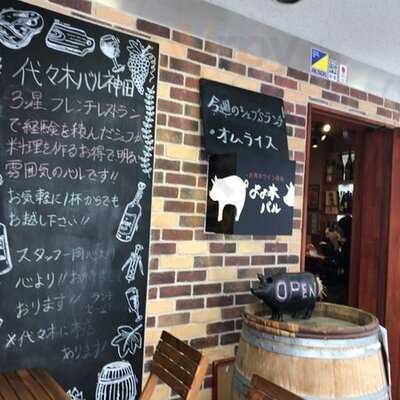 代々木バル神田
3ッ星フレンチレストラン
で経験を積んだシェフが
料理を作るお得で明るい
雰囲気のバルです!!
お気軽に1杯からでも
お越し下さい!!
スタッフ一同心より
心より!!
おります!!
※代々木に本店
あります!
今週のシェフズランチ
・オムライス
よよ木
バル
OPEN